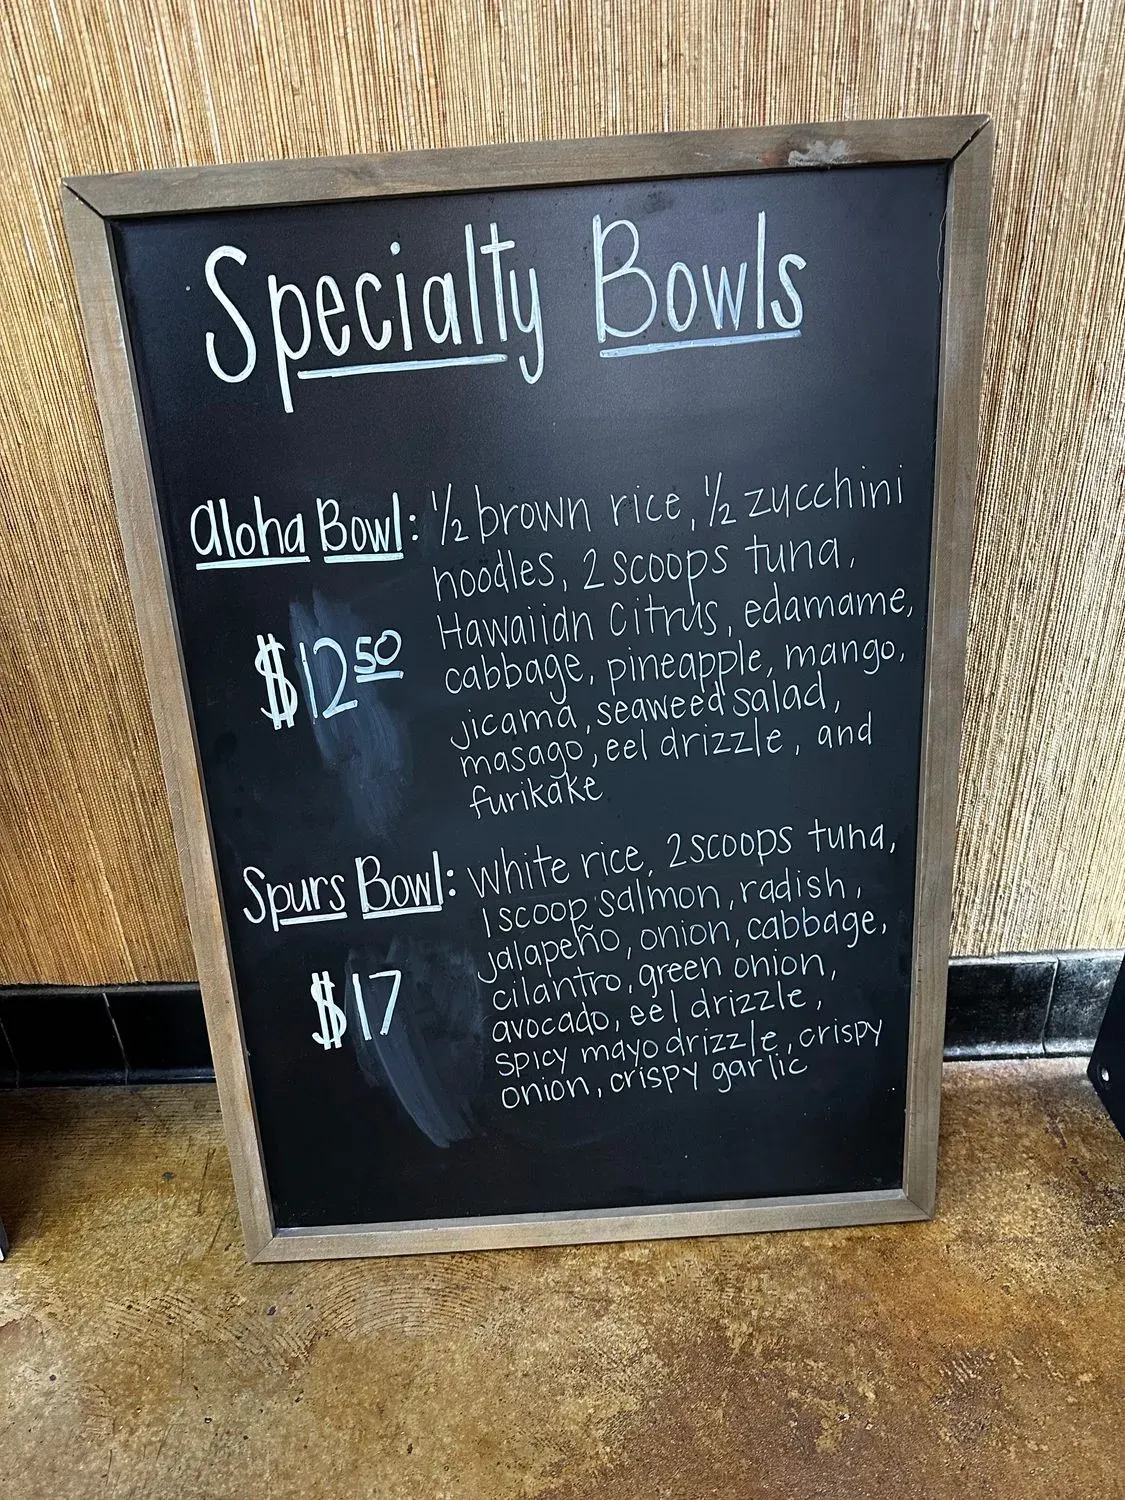 Specialty Bowls
aloha Bowl: ½ brown rice, ½ zucchini
noodles, 2 scoops tuna,
Hawaiian Citrus, edamame,
$12 50
cabbage, pineapple, mango,
jicama, seaweed salad,
masago, eel drizzle, and
furikake
Spurs Bowl: white rice, 2 scoops tuna,
1 scoop salmon, radish,
jalapeño, onion, cabbage,
$17
cilantro, green onion,
avocado, eel drizzle,
spicy mayo drizzle, crispy
onion, crispy garlic